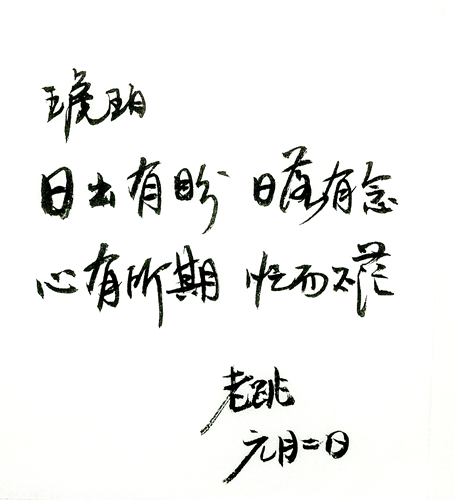 琥珀
日出有盼 日落有念
心有所期 忙而不茫
老跳
元月二日